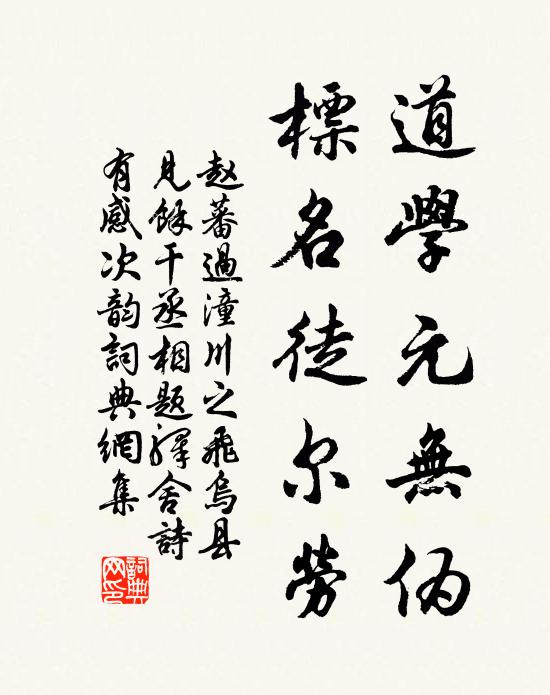 道學元無偽
標名徒尔勞
赵蕃過潼川之飛烏县
見餘干丞相題驛舍詩
有感次韵詞典網集
詞典網印